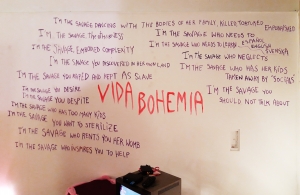 I'M THE SAVAGE DANCING WITH THE BODIES OF HER FAMILY, KILLED TORTURED
I'M THE SAVAGE WHO NEEDS TO
I'M THE SAVAGE WHO NEEDS TO LEARN
ENGLISH
SVENSKA
I'M THE SAVAGE, COMPLEXITY
I'M THE SAVAGE WHO NEGLECTS
I'M THE SAVAGE YOU DISCOVERED IN HER OWN LAND
I'M THE SAVAGE WHO HAS HER KIDS
TAKEN AWAY BY SOCIALS
I'M THE SAVAGE YOU RAPED AND KEPT AS SLAVE
I'M THE SAVAGE YOU
SHOULD NOT TALK ABOUT
I'M THE SAVAGE YOU DESIRE
I'M THE SAVAGE YOU DESPITE
VIDA BOHEMIA
I'M THE SAVAGE WHO HAS TOO MANY KIDS
I'M THE SAVAGE YOU WANT TO STERILIZE
I'M THE SAVAGE WHO RENTS YOU HER WOMB
I'M THE SAVAGE WHO INSPIRES YOU TO HELP